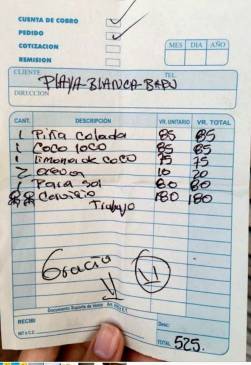 CUENTA DE COBRO
PEDIDO
COTIZACION
REMISION
MES DIA AÑO
CLIENTE PLAYA-BLANCA-BARU TEL.
DIRECCION
CANT. DESCRIPCIÓN VR. UNITARIO VR. TOTAL
1 Piña colada 85 85
1 Coco loco 85 85
1 limonada de coco 75 75
2 10 20
1 Para sol 80 80
180 180
Trabajo
Gracia
Documento Soporte de Venta
RECIBI
NIT o C.C.
Desc:
TOTAL 525.